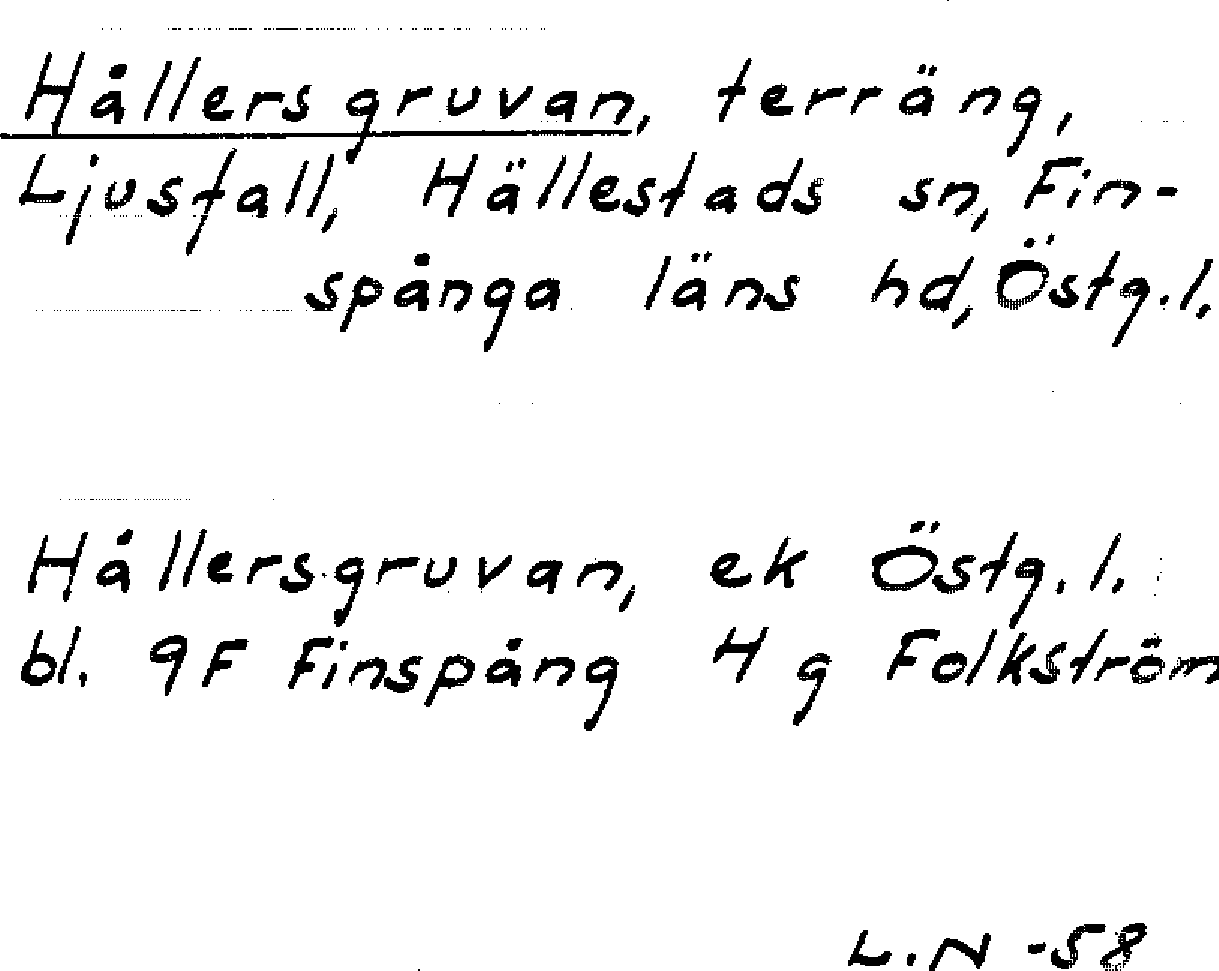 Hållersgruvan, terräng,
Ljusfall, Hällestads sn, Fin-
spånga läns hd, Östg.l.
Hållersgruvan, ek Östg.l.
bl. 9F Finspång 4g Folkström
L.N -58